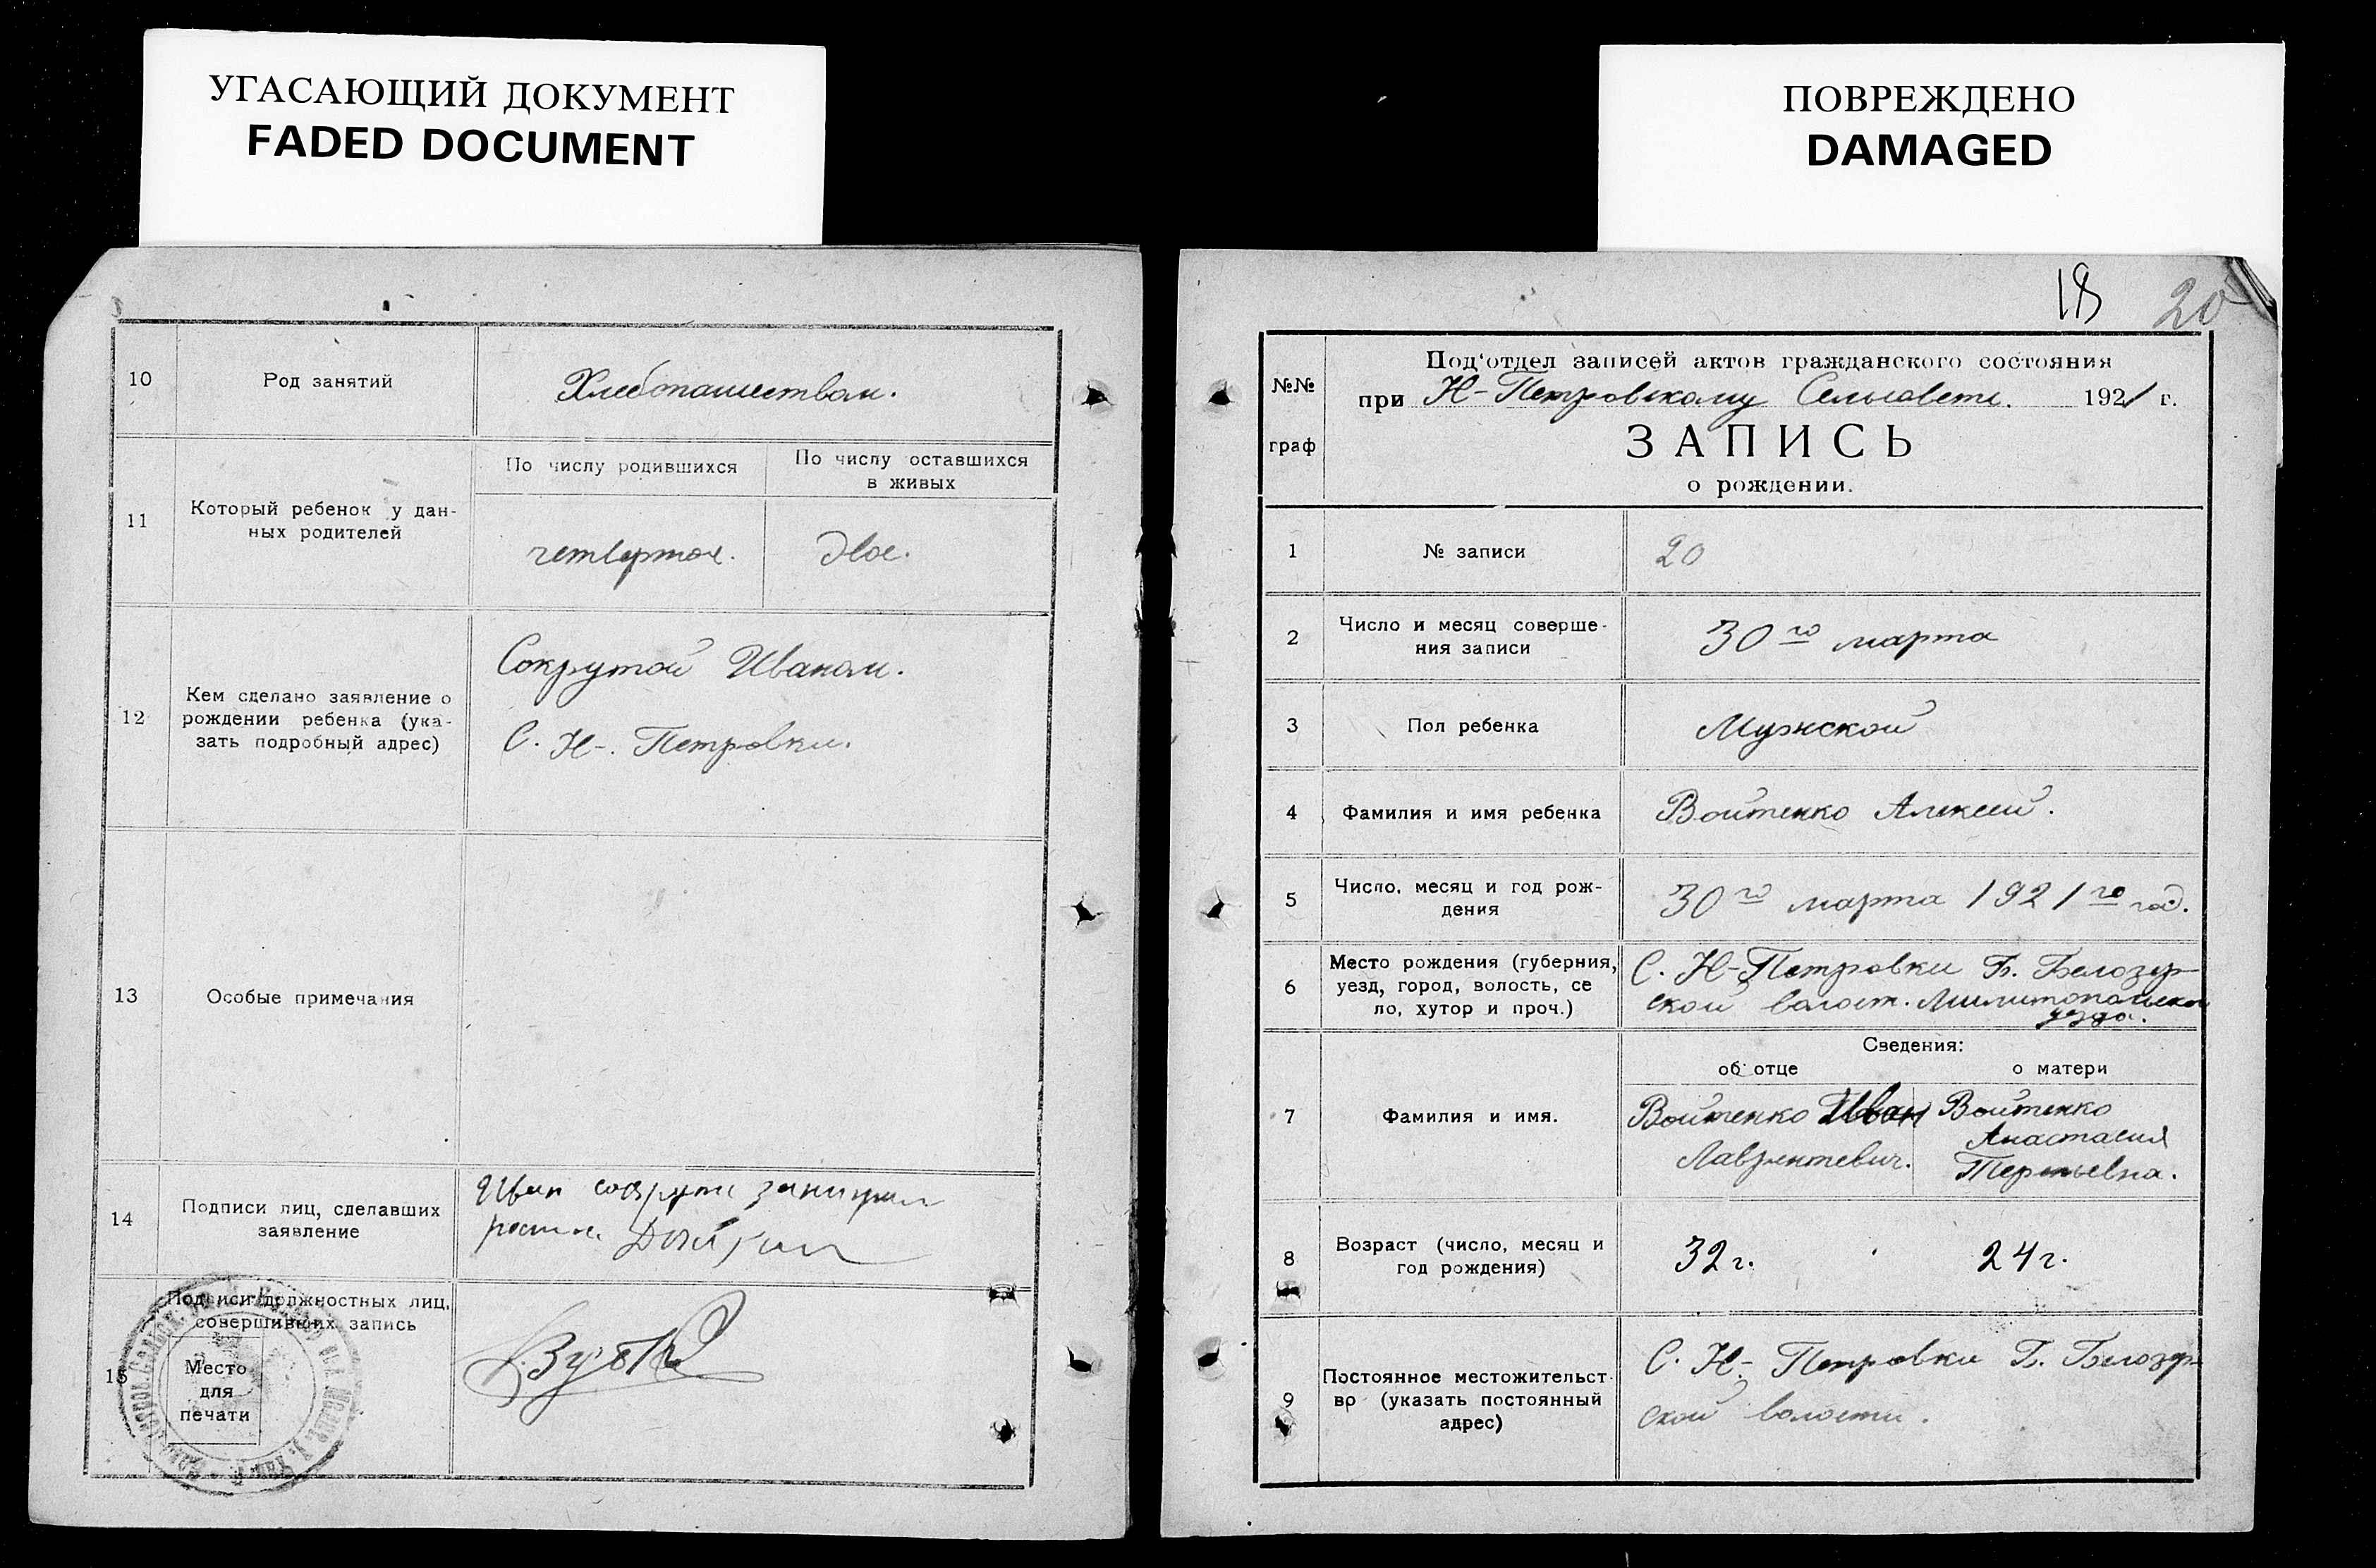 УГАСАЮЩИЙ ДОКУМЕНТ
FADED DOCUMENT
ПОВРЕЖДЕНО
DAMAGED
10
Род занятий
Хлебопашеством.
11
Который ребенок у дан-
ных родителей
По числу родившихся
По числу оставшихся
в живых
четвертое.
двое.
12
Кем сделано заявление о
рождении ребенка (ука-
зать подробный адрес)
Сокрутой Иваном.
С. Н-. Петровки.
13
Особые примечания
14
Подписи лиц, сделавших
заявление
Иван
15
Подписи должностных лиц,
совершивших запись
Место
для
печати
18 20
№№
граф
Под'отдел записей актов гражданского состояния
при Н-Петровскому Сельсовете. 1921 г.
ЗАПИСЬ
о рождении.
1
№ записи
20
2
Число и месяц соверше-
ния записи
30го марта
3
Пол ребенка
Мужской
4
Фамилия и имя ребенка
Войтенко Алексей.
5
Число, месяц и год рож-
дения
30го марта 1921го год.
6
Место рождения (губерния,
уезд, город, волость, се
ло, хутор и проч.)
С. Н-Петровки Б. Белозер-
ской волост. Милитопольска
уезда.
Сведения:
об отце
о матери
7
Фамилия и имя.
Войтенко Иван
Лаврентевич.
Войтенко
Анастасия
Терентьевна.
8
Возраст (число, месяц и
год рождения)
32 г.
24 г.
9
Постоянное местожительст-
во (указать постоянный
адрес)
С. Н-. Петровки Б. Белозер-
ской волости.